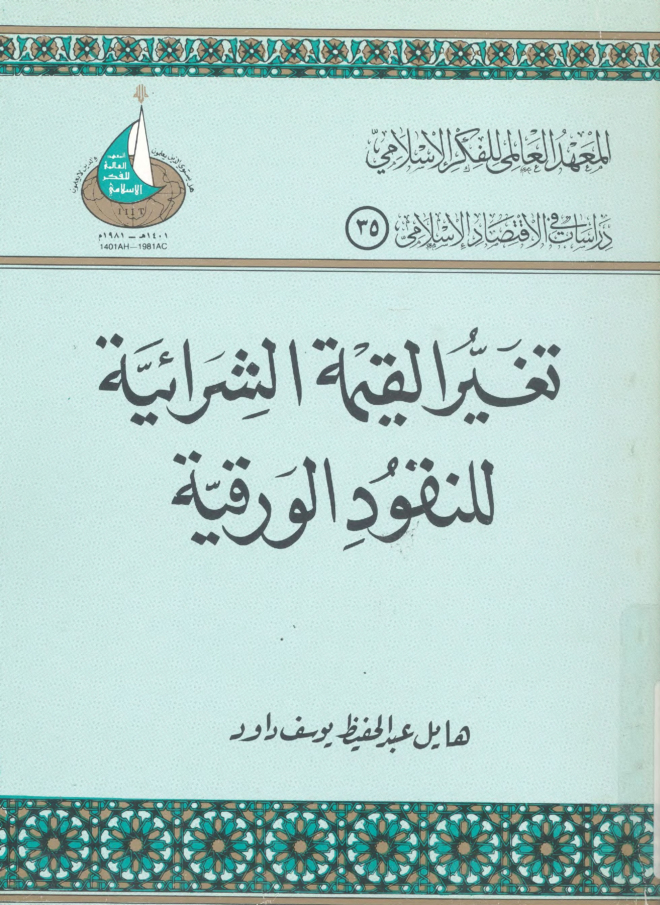 المعهد العالمي للفكر الإسلامي
دراسات في الاقتصاد الإسلامي (٣٥)
المعهد
العالمي
للفكر
الإسلامي
١٤٠١هـ - ١٩٨١م
1401AH-1981AC
تغيُّر القيمة الشِرَائيَّة
للنقُودِ الوَرقيَّة
هايل عبد الحفيظ يوسف داود